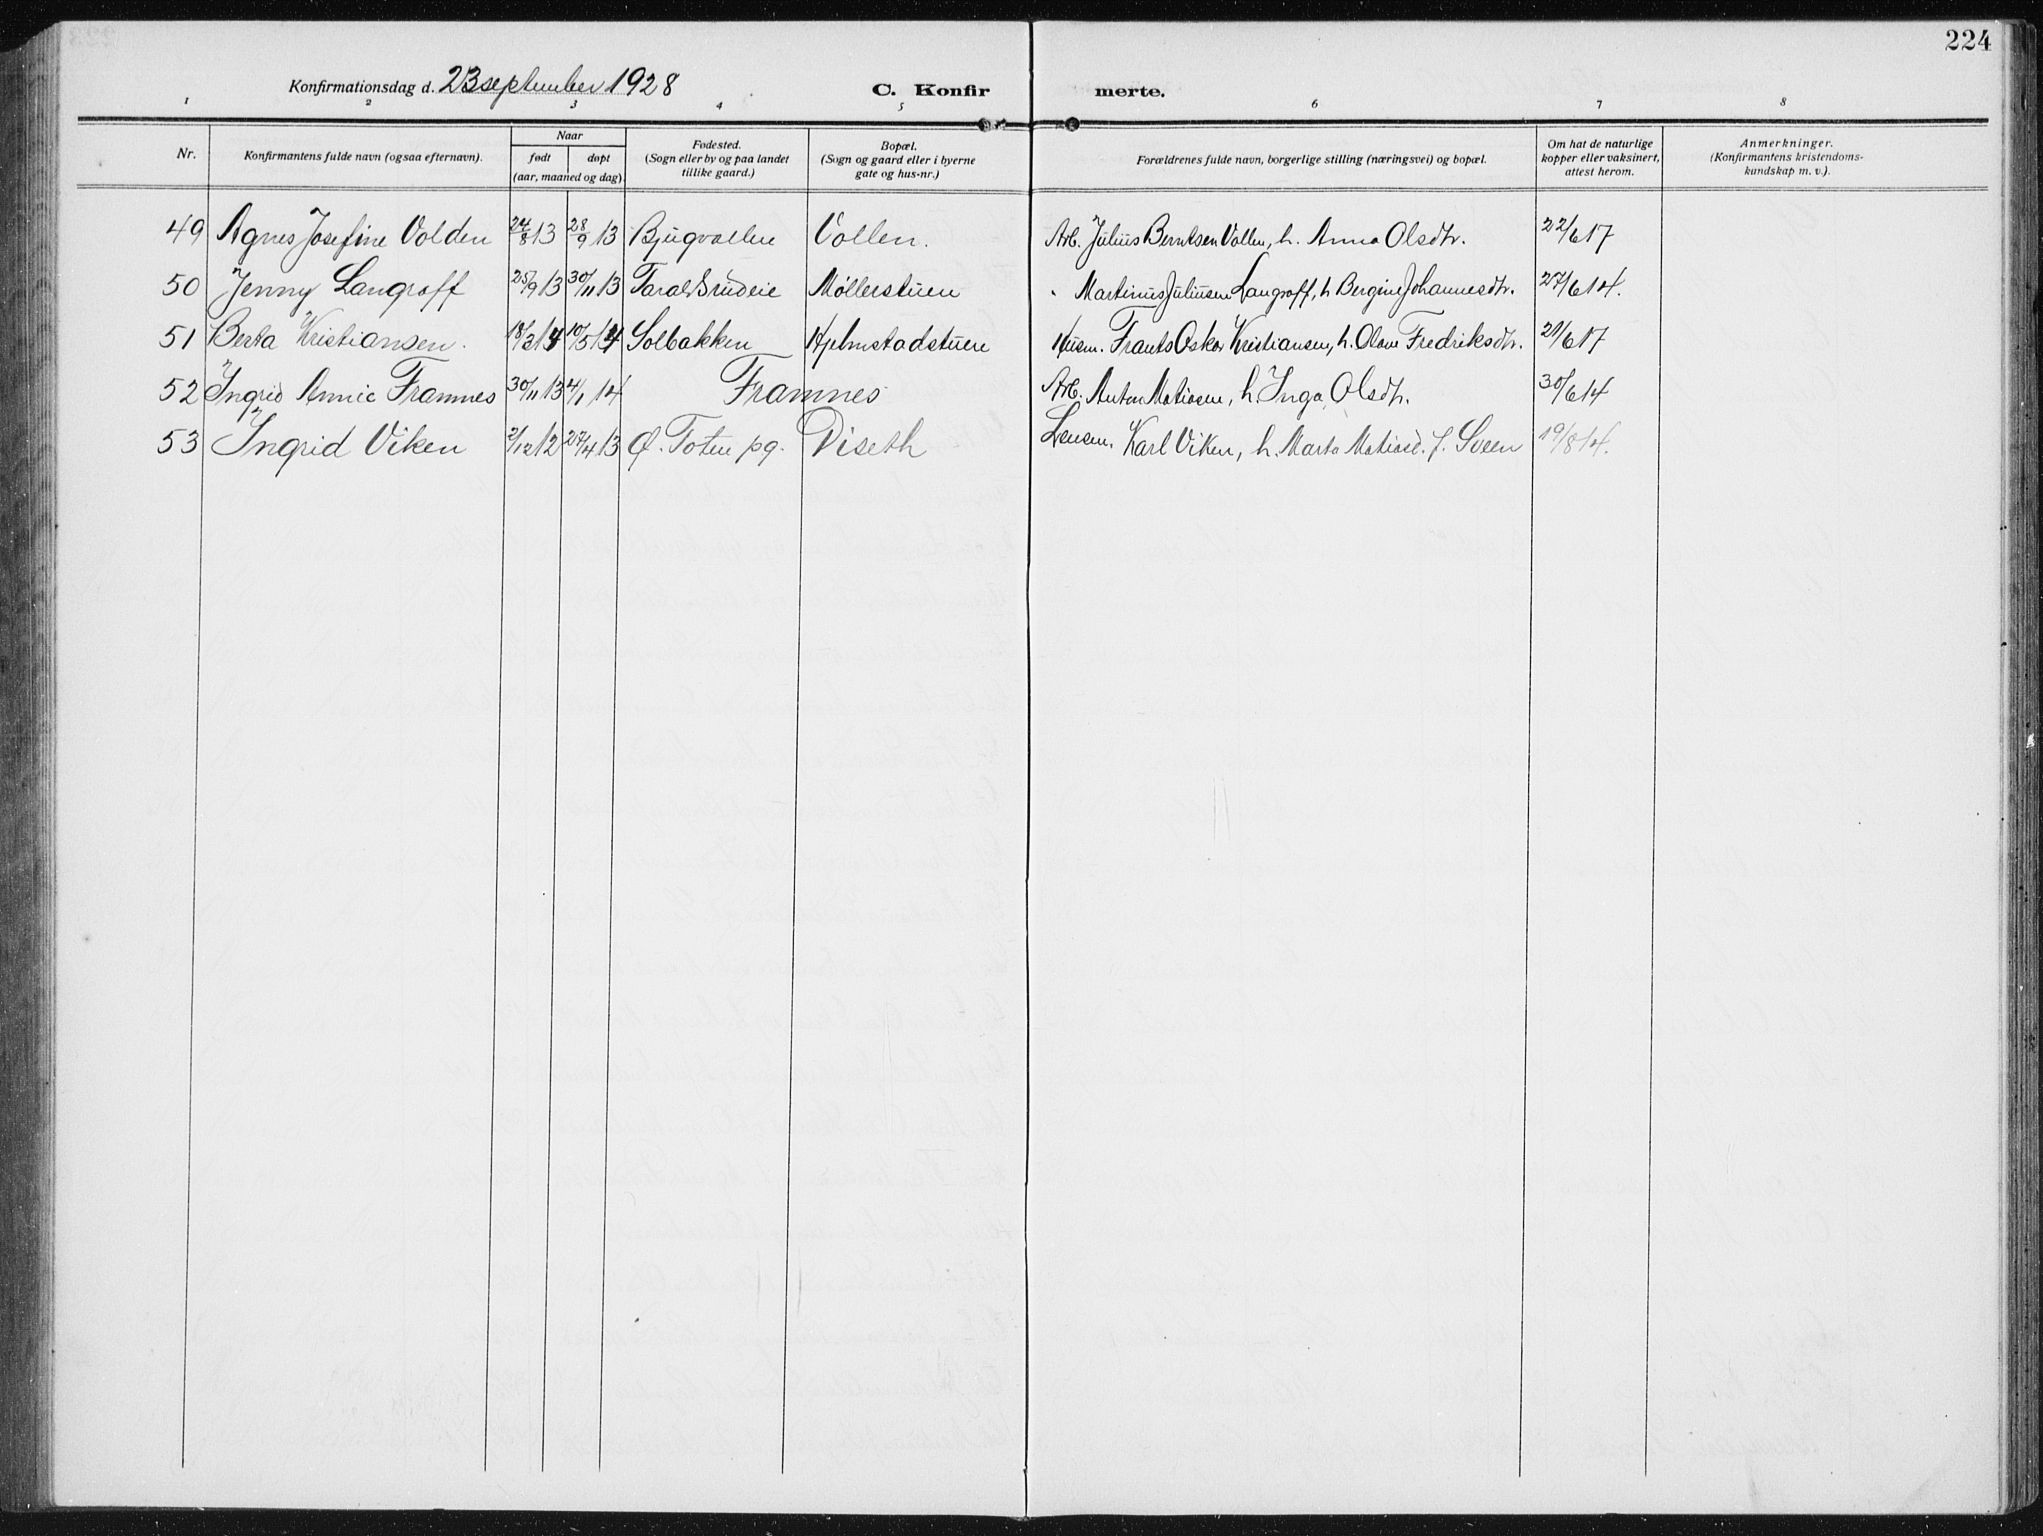 224
Konfirmationsdag d. 23 september 1928 C. Konfirmerte.
1 2 3 4 5 6 7 8
Nr. Konfirmantens fulde navn (ogsaa efternavn). Naar født døpt (aar, maaned og dag). Fødested. (Sogn eller by og paa landet tillike gaard.) Bopæl. (Sogn og gaard eller i byerne gate og hus-nr.) Forældrenes fulde navn, borgerlige stilling (næringsvei) og bopæl. Om hat de naturlige kopper eller vaksinert, attest herom. Anmerkninger. (Konfirmantens kristendomskundskap m. v.).
49 Agnes Josefine Volden 24/8 13 28/9 13 Bjugvollen Vollen. Arb. Julius Berntsen Vollen, h. Anna Olsdtr. 22/6 17
50 Jenny Langroff 25/9 13 30/11 13 Møllerstuen Martinius Juliusen Langroff, h Bergine Johannesdtr. 27/6 14.
51 Berta Kristiansen. 18/3 14 10/5 14 Solbakken Hjelmstadstuen Husm. Frants Oskar Kristiansen, h. Olave Fredriksdtr. 21/6 17
52 Ingrid Annie Framnes 30/11 13 4/1 14 Framnes Arb. Anton Matiasen, h. Inga Olsdtr. 30/6 14
53 Ingrid Viken 2/12 12 27/4 13 Ø. Toten pg. Diseth Lensm. Karl Viken, h. Marta Matiasd. f. Sveen 19/8 14.